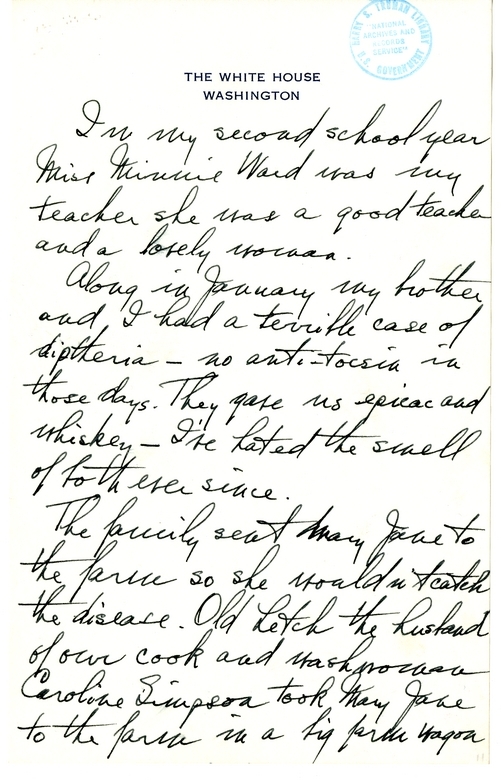 HARRY S. TRUMAN LIBRARY
"NATIONAL
ARCHIVES AND
RECORDS
SERVICE"
U.S. GOVERNMENT
THE WHITE HOUSE
WASHINGTON
In my second school year
Miss Minnie Ward was my
teacher she was a good teacher
and a lovely woman.
Along in January my brother
and I had a terrible case of
diptheria – no anti-tocsin in
those days. They gave us epicac and
whiskey – I've hated the smell
of both ever since.
The family sent Mary Jane to
the farm so she wouldn't catch
the disease. Old Letch the husband
of our cook and washwoman
Caroline Simpson took Mary Jane
to the farm in a big farm wagon